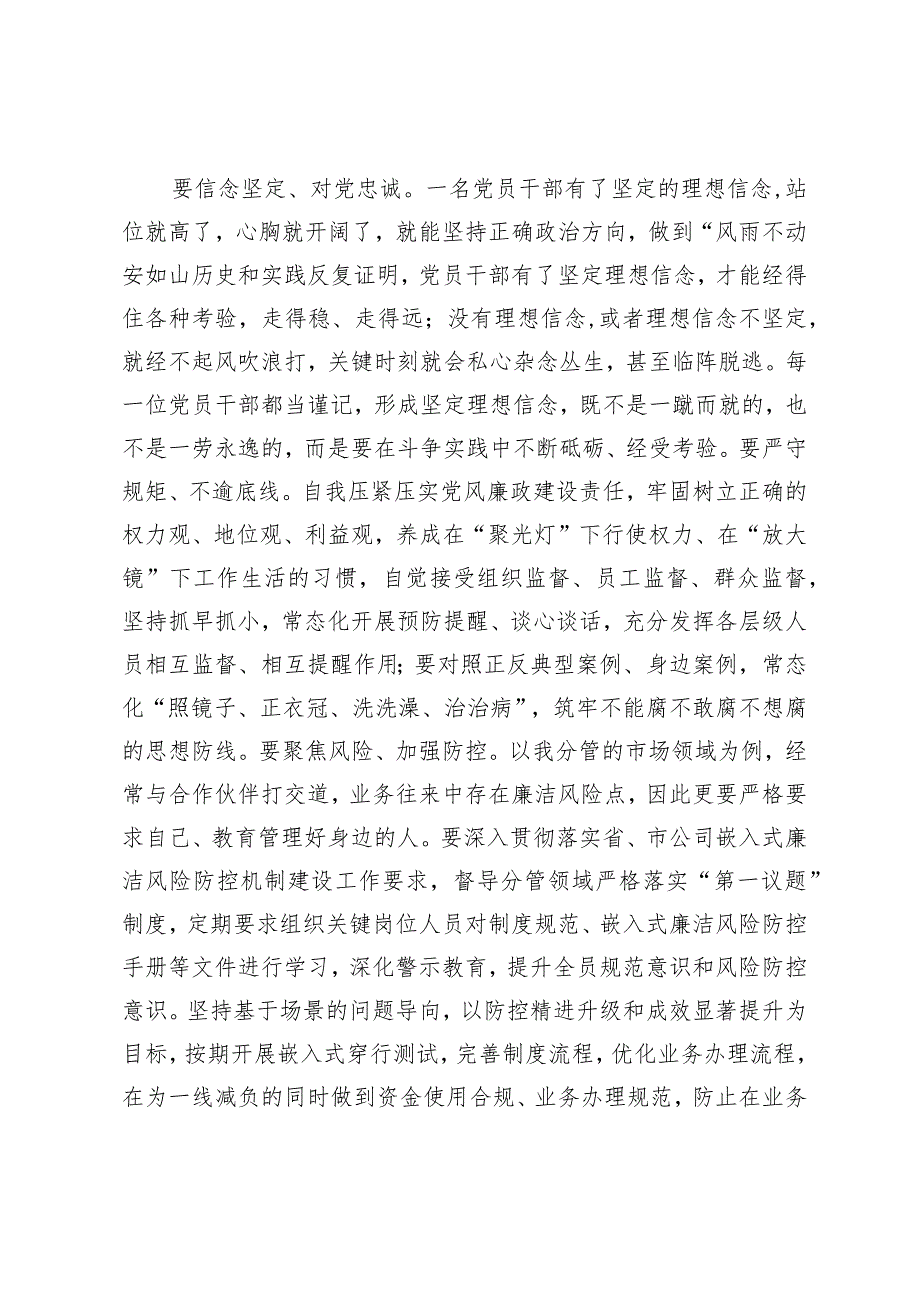 要信念坚定、对党忠诚。一名党员干部有了坚定的理想信念,站
位就高了，心胸就开阔了，就能坚持正确政治方向，做到“风雨不动
安如山历史和实践反复证明，党员干部有了坚定理想信念，才能经得
住各种考验，走得稳、走得远；没有理想信念,或者理想信念不坚定，
就经不起风吹浪打，关键时刻就会私心杂念丛生，甚至临阵脱逃。每
一位党员干部都当谨记，形成坚定理想信念，既不是一蹴而就的，也
不是一劳永逸的，而是要在斗争实践中不断砥砺、经受考验。要严守
规矩、不逾底线。自我压紧压实党风廉政建设责任，牢固树立正确的
权力观、地位观、利益观，养成在“聚光灯”下行使权力、在“放大
镜”下工作生活的习惯，自觉接受组织监督、员工监督、群众监督，
坚持抓早抓小，常态化开展预防提醒、谈心谈话，充分发挥各层级人
员相互监督、相互提醒作用；要对照正反典型案例、身边案例，常态
化“照镜子、正衣冠、洗洗澡、治治病”，筑牢不能腐不敢腐不想腐
的思想防线。要聚焦风险、加强防控。以我分管的市场领域为例，经
常与合作伙伴打交道，业务往来中存在廉洁风险点，因此更要严格要
求自己、教育管理好身边的人。要深入贯彻落实省、市公司嵌入式廉
洁风险防控机制建设工作要求，督导分管领域严格落实“第一议题”
制度，定期要求组织关键岗位人员对制度规范、嵌入式廉洁风险防控
手册等文件进行学习，深化警示教育，提升全员规范意识和风险防控
意识。坚持基于场景的问题导向，以防控精进升级和成效显著提升为
目标，按期开展嵌入式穿行测试，完善制度流程，优化业务办理流程，
在为一线减负的同时做到资金使用合规、业务办理规范，防止在业务